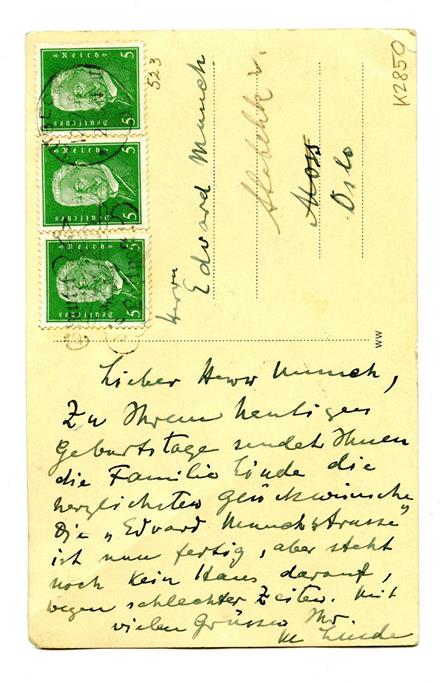 5 Deutsches Reich 5
5 Deutsches Reich 5
5 Deutsches Reich 5
523
K2850
Herrn
Edvard Munch
Moss
Oslo
WW
Lieber Herr Munch,
Zu Ihrem heutigen
Geburtstage sendet Ihnen
die Familie Linde die
herzlichsten Glückwünsche
Die „Edvard Munchstrasse"
ist nun fertig, aber steht
noch kein Haus darauf,
wegen schlechter Zeiten. Mit
vielen Grüssen Ihr.
M Linde